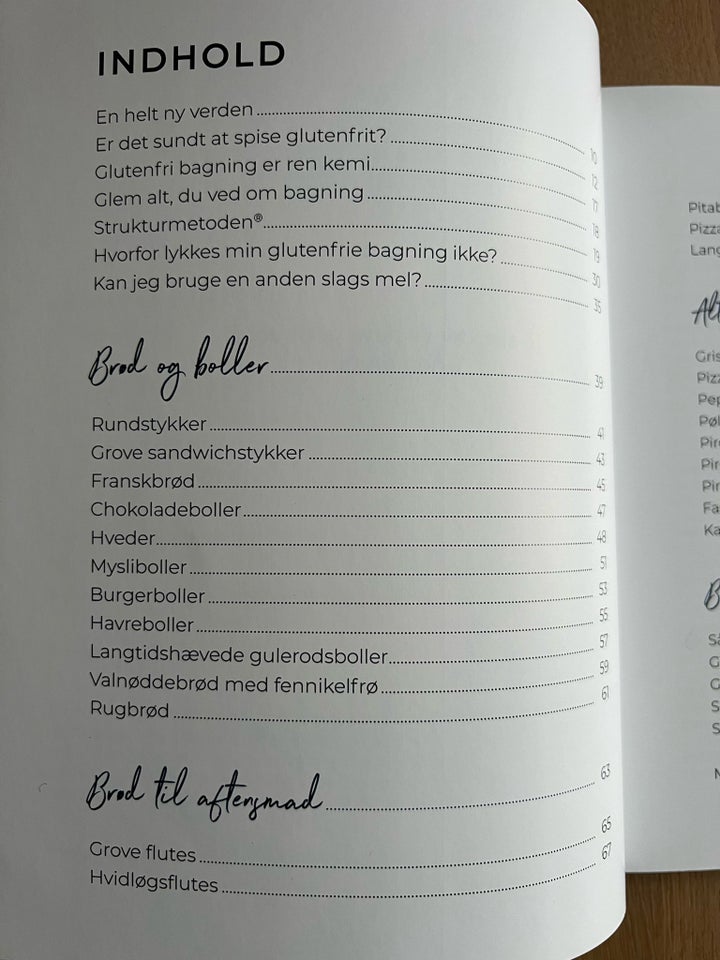 INDHOLD
En helt ny verden 10
Er det sundt at spise glutenfrit? 12
Glutenfri bagning er ren kemi 17
Glem alt, du ved om bagning 18
Strukturmetoden® 19
Hvorfor lykkes min glutenfrie bagning ikke? 30
Kan jeg bruge en anden slags mel? 35
Brød og boller 39
Rundstykker 41
Grove sandwichstykker 43
Franskbrød 45
Chokoladeboller 47
Hveder 48
Mysliboller 51
Burgerboller 53
Havreboller 55
Langtidshævede gulerodsboller 57
Valnøddebrød med fennikelfrø 59
Rugbrød 61
Brød til aftensmad 63
Grove flutes 65
Hvidløgsflutes 67
Pitab
Pizza
Lang
Alt
Gris
Pizz
Pep
Pøl
Piro
Pir
Pir
Fa
Ka
B
Så
G
G
S
S
N